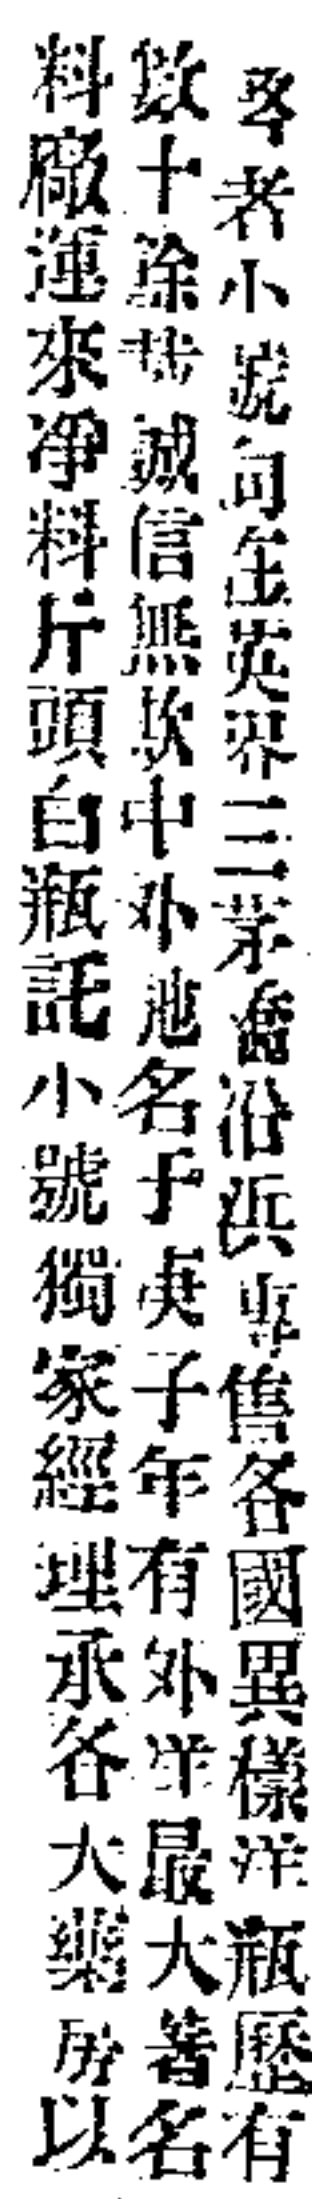 啓者小號向在英界三茅閣沿浜專售各國異樣洋瓶歷有
數十餘世誠信無欺中外馳名于庚子年有外洋最大著名
料廠運來凈料斤頭白瓶託小號獨家經理承各大藥房以